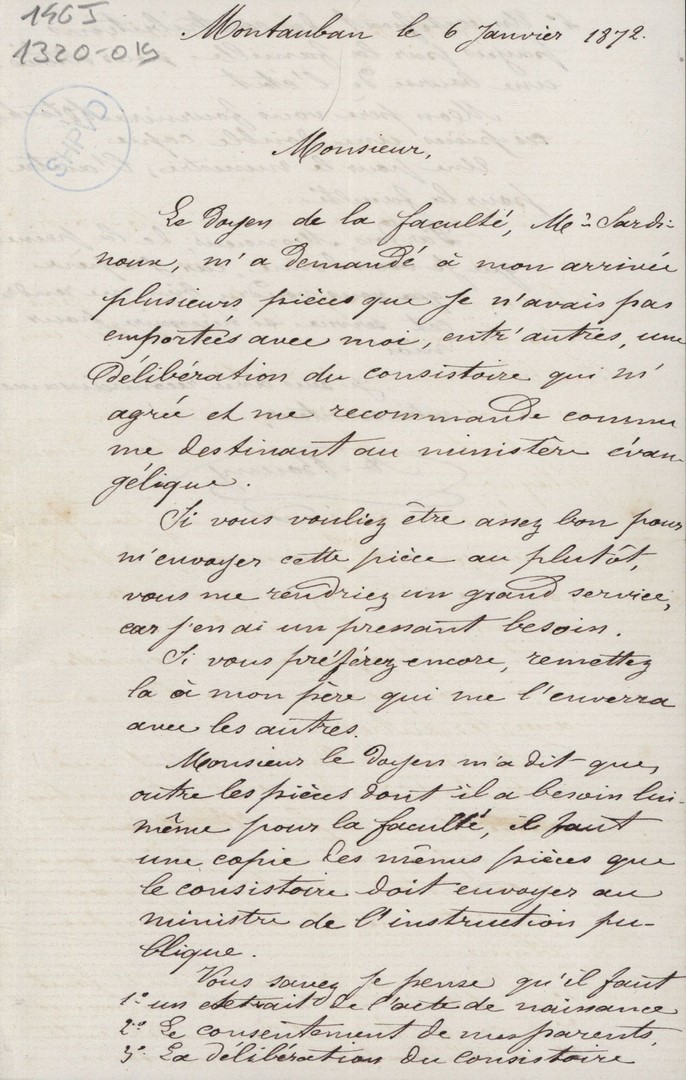 Montauban le 6 Janvier 1872.
Monsieur,
Le Doyen de la faculté, Mr Sardi-
noux, m'a demandé à mon arrivée
plusieurs pièces que je n'avais pas
emportées avec moi, entr'autres, une
Délibération du consistoire qui m'
agrée et me recommande comme
me destinant au ministère évan-
gélique.
Si vous vouliez être assez bon pour
m'envoyer cette pièce au plutôt,
vous me rendriez un grand service,
car j'en ai un pressant besoin.
Si vous préférez encore, remettez
la à mon père qui me l'enverra
avec les autres.
Monsieur le Doyen m'a dit que,
outre les pièces dont il a besoin lui-
même pour la faculté, il faut
une copie des mêmes pièces que
le consistoire doit envoyer au
ministre de l'instruction pu-
blique.
Vous savez je pense qu'il faut
1º un extrait de l'acte de naissance
2º Le consentement de mes parents,
3º La délibération du consistoire
SHPVD